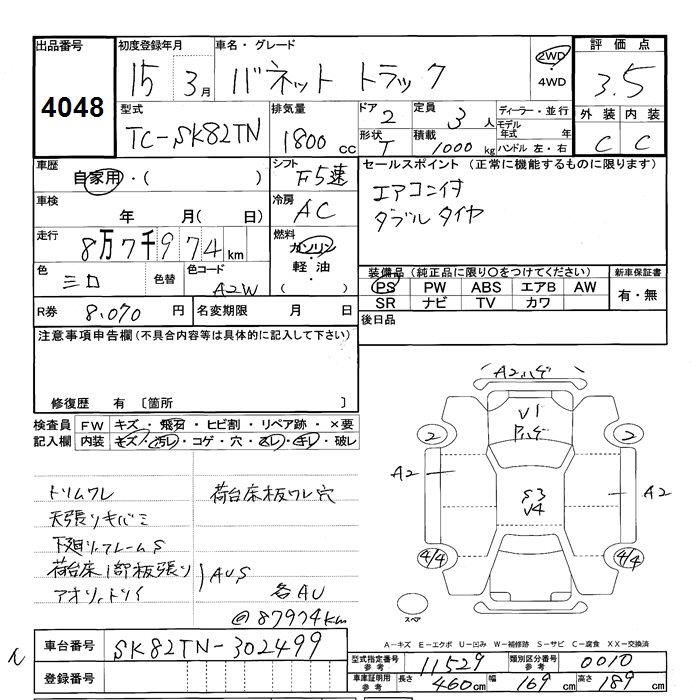 出品番号 初度登録年月 車名・グレード 評価点
4048
15 3月 バネット トラック 2WD ・ 4WD 3.5
型式 排気量 ドア 2 定員 3人 ディーラー・並行 外装 内装
TC-SK82TN 1800cc 形状 T 積載 1000kg モデル年式 年 C C
ハンドル 左・右
車歴 シフト F5速 セールスポイント (正常に機能するものに限ります)
自家用・( ) エアコン付
車検 年 月( 日) 冷房 AC ダブルタイヤ
走行 8万7千974km 燃料 ガソリン・軽油・( )
色 色替 色コード A2W 装備品(純正品に限り〇をつけてください) 新車保証書
PS PW ABS エアB AW 有・無
SR ナビ TV カワ
R券 8,070円 名変期限 月 日 後日品
注意事項申告欄(不具合内容等は具体的に記入して下さい)
修復歴 有 〔箇所 〕
検査員 FW キズ・飛石・ヒビ割・リペア跡・×要
記入欄 内装 キズ・汚レ・コゲ・穴・スレ・キレ・破レ
A2ハゲ
V1
Pハゲ
2 2
A2 A2
S3
V4
4/4 4/4
スペア
トリムワレ 荷台床板ワレ穴
下廻リ、フレームS
荷台床1部板張り AUS
各AU
@87974km
A-キズ E-エクボ U-凹み W-補修跡 S-サビ C-腐食 XX-交換済
車台番号 SK82TN-302499
型式指定番号 参考 11529 類別区分番号 参考 0010
登録番号
車庫証明用 参考 長さ 460cm 幅 169cm 高さ 189cm